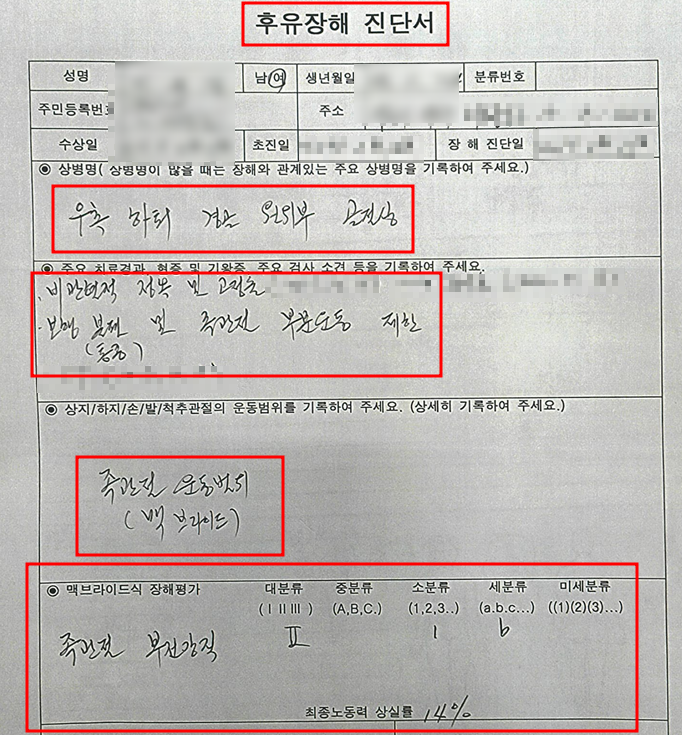 후유장해 진단서
성명 남(여) 생년월일 분류번호
주민등록번호 주소
수상일 초진일 장 해 진단일
◉ 상병명( 상병명이 많을 때는 장해와 관계있는 주요 상병명을 기록하여 주세요.)
우측 하퇴 경골 원위부 골절상
◉ 주요 치료경과, 현증 및 기왕증, 주요 검사 소견 등을 기록하여 주세요.
. 비관혈적 정복 및 고정술
. 보행 문제 및 족관절 부분운동 제한
(통증)
◉ 상지/하지/손/발/척추관절의 운동범위를 기록하여 주세요. (상세히 기록하여 주세요.)
족관절 운동범위
(맥 브라이드)
◉ 맥브라이드식 장해평가 대분류 중분류 소분류 세분류 미세분류
(ⅠⅡⅢ) (A,B,C.) (1,2,3..) (a.b.c...) ((1)(2)(3)...)
족관절 부전강직 Ⅱ 1 b
최종노동력 상실률 14%